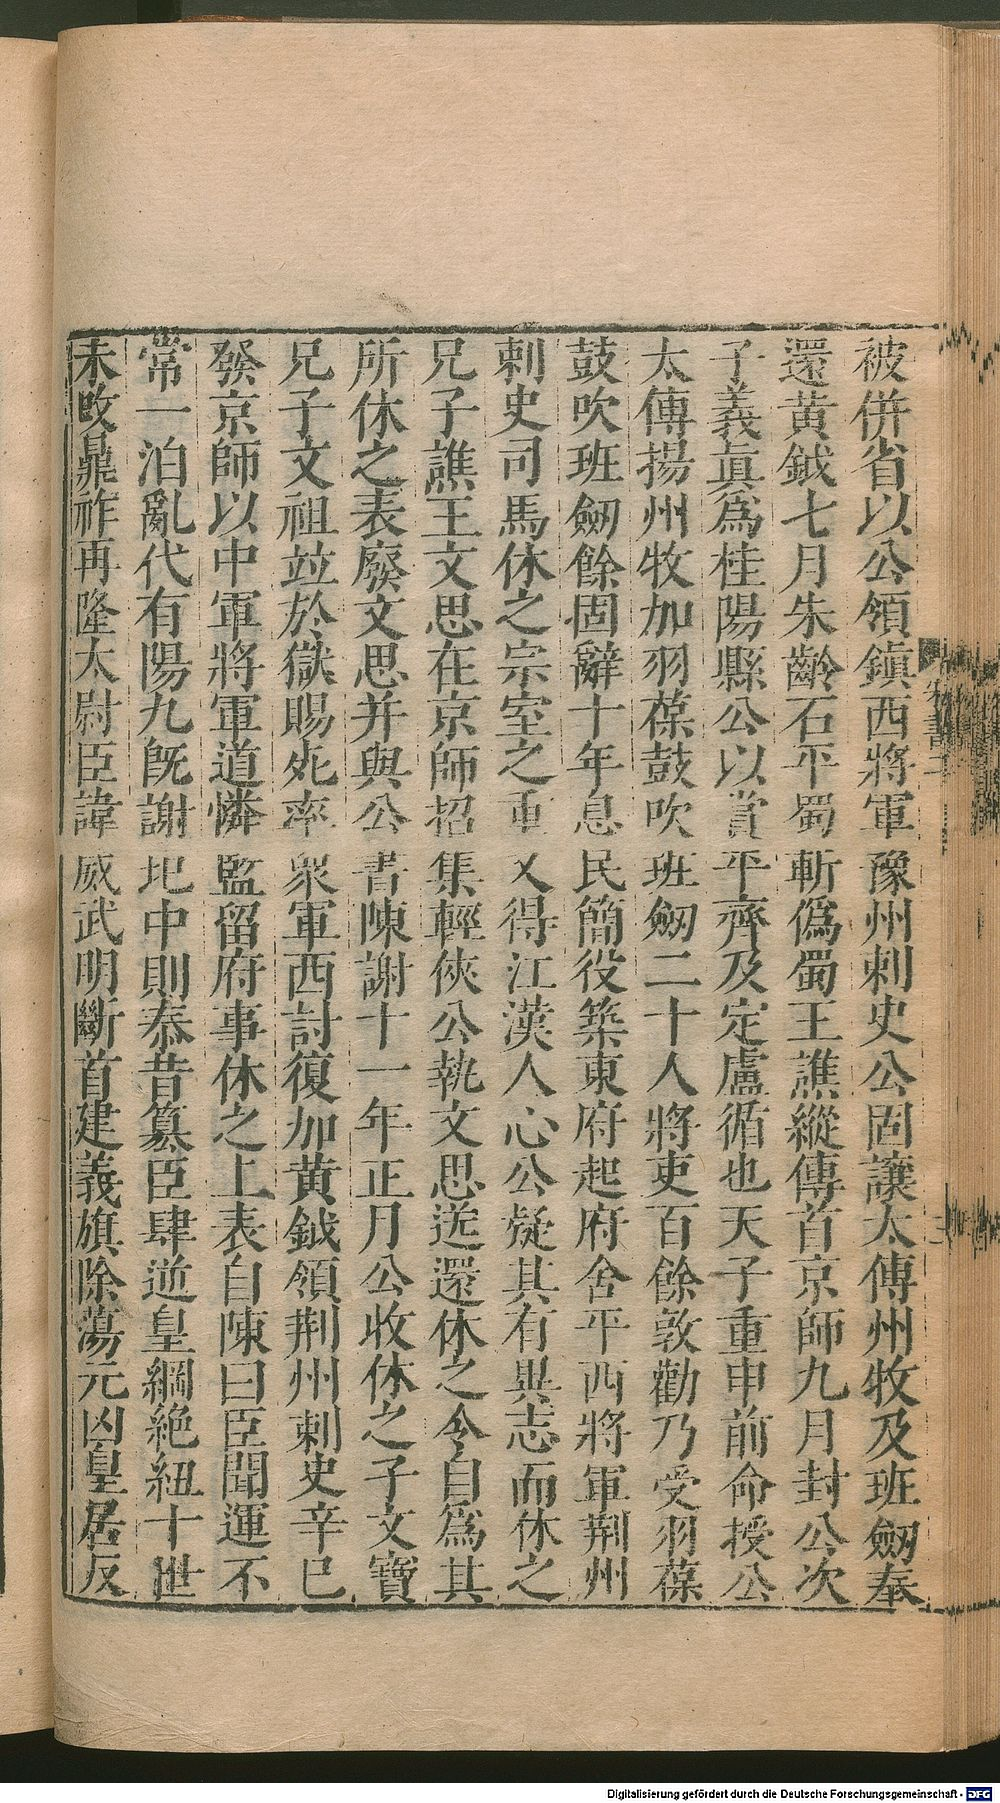 被併省以公領鎮西將軍豫州刺史公固讓太傅州牧及班劒奉
還黃鉞七月朱齡石平蜀斬僞蜀王譙縱傳首京師九月封公次
子義眞爲桂陽縣公以賞平齊及定盧循也天子重申前命授公
太傅揚州牧加羽葆鼓吹班劒二十人將吏百餘敦勸乃受羽葆
鼓吹班劒餘固辭十年息民簡役築東府起府舍平西將軍荆州
刺史司馬休之宗室之重又得江漢人心公疑其有異志而休之
兄子譙王文思在京師招集輕俠公執文思送還休之令自爲其
所休之表廢文思并與公書陳謝十一年正月公收休之子文寶
兄子文祖竝於獄賜死率衆軍西討復加黃鉞領荆州刺史辛巳
發京師以中軍將軍道憐監留府事休之上表自陳曰臣聞運不
常一治亂代有陽九旣謝圮中則泰昔簒臣肆逆皇綱絶紐十世
未改鼎祚再隆太尉臣諱威武明斷首建義旗除蕩元凶皇居反
宋書二
Digitalisierung gefördert durch die Deutsche Forschungsgemeinschaft - DFG